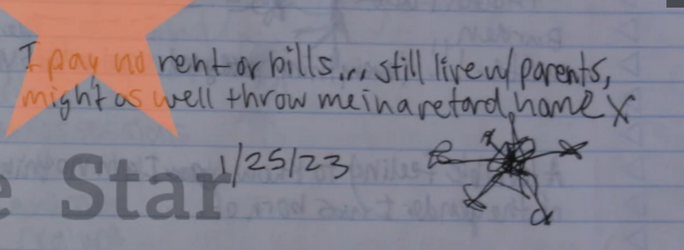 I pay no rent or bills... still live w/ parents,
might as well throw me in a retard home x
1/25/23
e Star